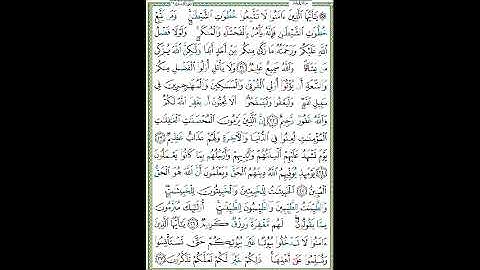 يَٰٓأَيُّهَا ٱلَّذِينَ ءَامَنُوا۟ لَا تَتَّبِعُوا۟ خُطُوَٰتِ ٱلشَّيْطَٰنِ ۚ وَمَن يَتَّبِعْ
خُطُوَٰتِ ٱلشَّيْطَٰنِ فَإِنَّهُۥ يَأْمُرُ بِٱلْفَحْشَآءِ وَٱلْمُنكَرِ ۚ وَلَوْلَا فَضْلُ
ٱللَّهِ عَلَيْكُمْ وَرَحْمَتُهُۥ مَا زَكَىٰ مِنكُم مِّنْ أَحَدٍ أَبَدًا وَلَٰكِنَّ ٱللَّهَ يُزَكِّى
مَن يَشَآءُ ۗ وَٱللَّهُ سَمِيعٌ عَلِيمٌ ﴿٢١﴾ وَلَا يَأْتَلِ أُو۟لُوا۟ ٱلْفَضْلِ مِنكُمْ
وَٱلسَّعَةِ أَن يُؤْتُوٓا۟ أُو۟لِى ٱلْقُرْبَىٰ وَٱلْمَسَٰكِينَ وَٱلْمُهَٰجِرِينَ فِى
سَبِيلِ ٱللَّهِ ۖ وَلْيَعْفُوا۟ وَلْيَصْفَحُوٓا۟ ۗ أَلَا تُحِبُّونَ أَن يَغْفِرَ ٱللَّهُ لَكُمْ ۗ
وَٱللَّهُ غَفُورٌ رَّحِيمٌ ﴿٢٢﴾ إِنَّ ٱلَّذِينَ يَرْمُونَ ٱلْمُحْصَنَٰتِ ٱلْغَٰفِلَٰتِ
ٱلْمُؤْمِنَٰتِ لُعِنُوا۟ فِى ٱلدُّنْيَا وَٱلْءَاخِرَةِ وَلَهُمْ عَذَابٌ عَظِيمٌ ﴿٢٣﴾
يَوْمَ تَشْهَدُ عَلَيْهِمْ أَلْسِنَتُهُمْ وَأَيْدِيهِمْ وَأَرْجُلُهُم بِمَا كَانُوا۟ يَعْمَلُونَ
﴿٢٤﴾ يَوْمَئِذٍ يُوَفِّيهِمُ ٱللَّهُ دِينَهُمُ ٱلْحَقَّ وَيَعْلَمُونَ أَنَّ ٱللَّهَ هُوَ ٱلْحَقُّ
ٱلْمُبِينُ ﴿٢٥﴾ ٱلْخَبِيثَٰتُ لِلْخَبِيثِينَ وَٱلْخَبِيثُونَ لِلْخَبِيثَٰتِ ۖ
وَٱلطَّيِّبَٰتُ لِلطَّيِّبِينَ وَٱلطَّيِّبُونَ لِلطَّيِّبَٰتِ ۚ أُو۟لَٰٓئِكَ مُبَرَّءُونَ
مِمَّا يَقُولُونَ ۖ لَهُم مَّغْفِرَةٌ وَرِزْقٌ كَرِيمٌ ﴿٢٦﴾ يَٰٓأَيُّهَا ٱلَّذِينَ
ءَامَنُوا۟ لَا تَدْخُلُوا۟ بُيُوتًا غَيْرَ بُيُوتِكُمْ حَتَّىٰ تَسْتَأْنِسُوا۟
وَتُسَلِّمُوا۟ عَلَىٰٓ أَهْلِهَا ۚ ذَٰلِكُمْ خَيْرٌ لَّكُمْ لَعَلَّكُمْ تَذَكَّرُونَ ﴿٢٧﴾